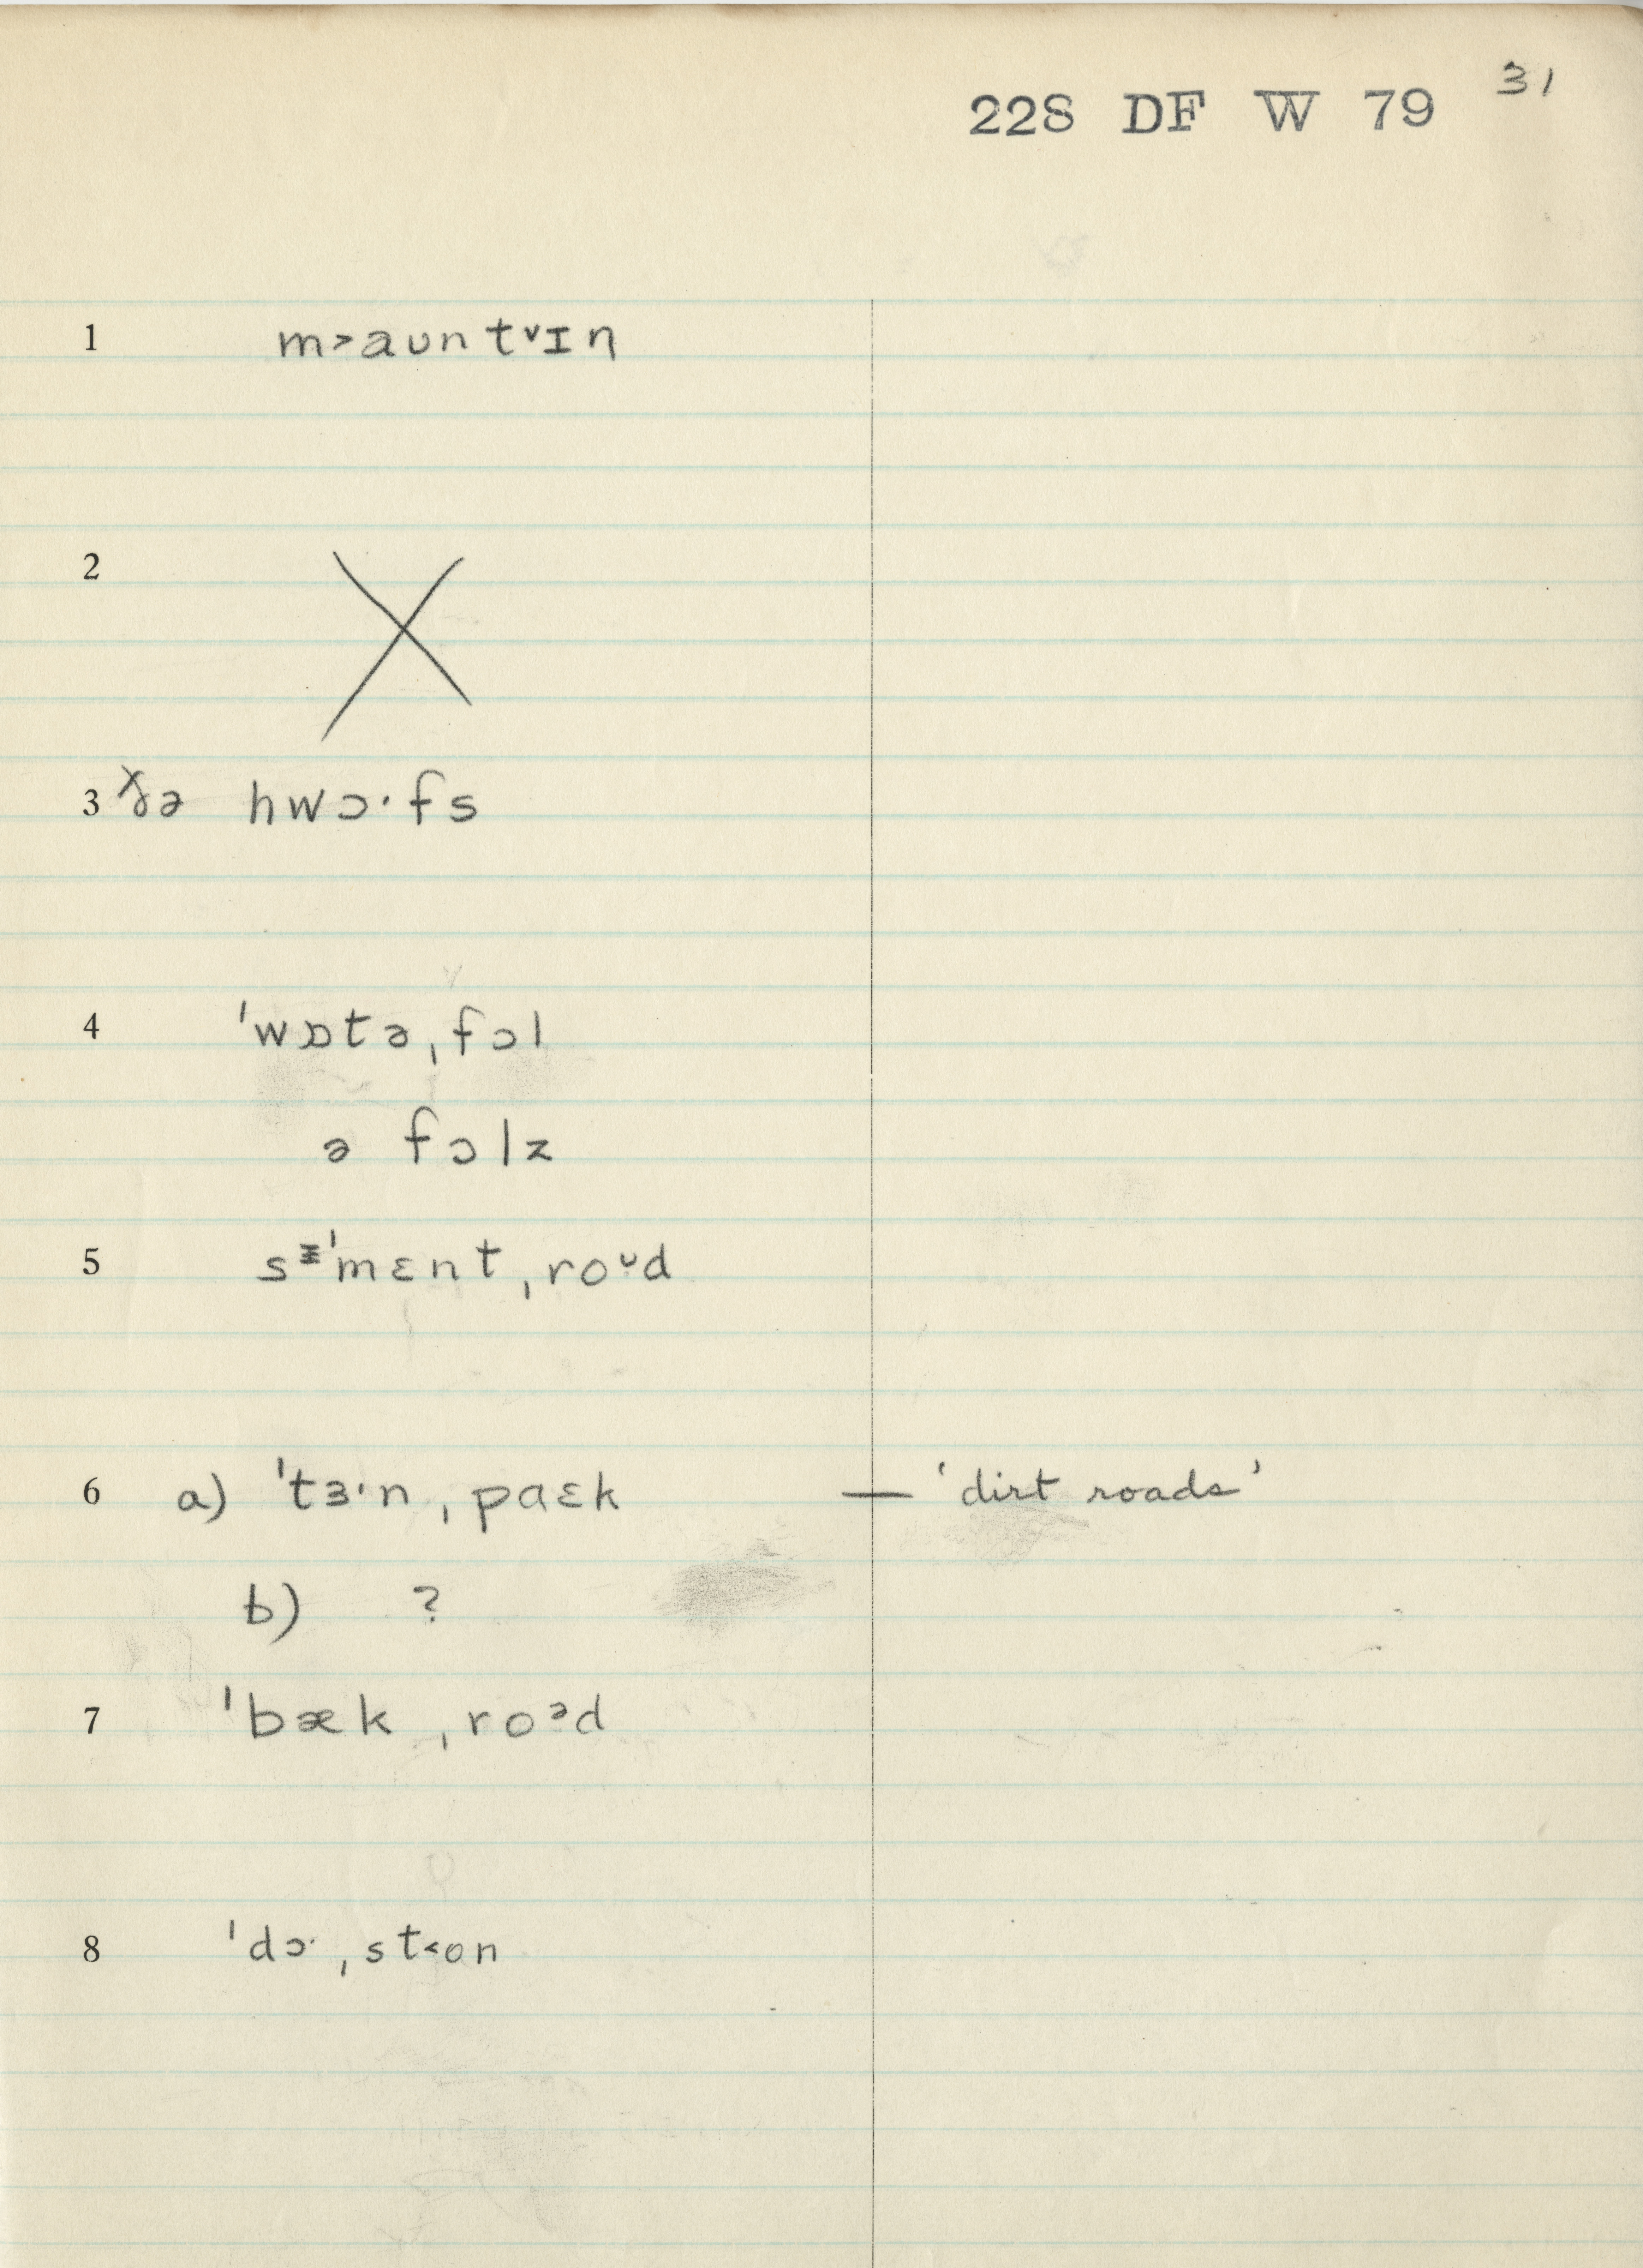 31
228 DF W 79
1 m˃aʊntᵛɪn
2
3 ðə hwɔ·fs
4 ˈwɒtəˌfɔl
ə fɔlz
5 sᵻˈmɛntˌroᶷd
6 a) ˈtɜ·nˌpaɛk — 'dirt roads'
b) ?
7 ˈbækˌroᵊd
8 ˈdɔ·ˌst˂on